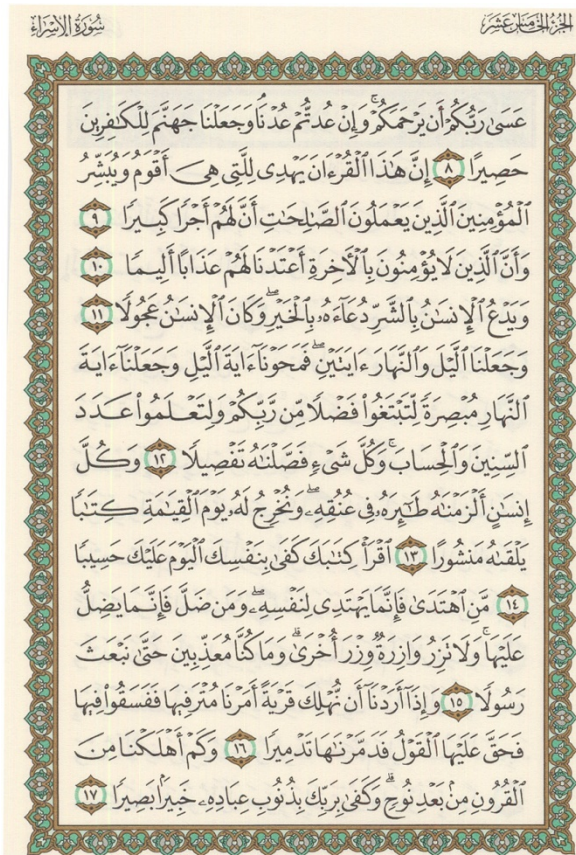 سُورَةُ الإِسْرَاءِ الجُزْءُ الخَامِسَ عَشَرَ
عَسَىٰ رَبُّكُمْ أَن يَرْحَمَكُمْ ۚ وَإِنْ عُدتُّمْ عُدْنَا ۘ وَجَعَلْنَا جَهَنَّمَ لِلْكَٰفِرِينَ
حَصِيرًا ٨ إِنَّ هَٰذَا ٱلْقُرْءَانَ يَهْدِى لِلَّتِى هِىَ أَقْوَمُ وَيُبَشِّرُ
ٱلْمُؤْمِنِينَ ٱلَّذِينَ يَعْمَلُونَ ٱلصَّٰلِحَٰتِ أَنَّ لَهُمْ أَجْرًا كَبِيرًا ٩
وَأَنَّ ٱلَّذِينَ لَا يُؤْمِنُونَ بِٱلْءَاخِرَةِ أَعْتَدْنَا لَهُمْ عَذَابًا أَلِيمًا ١٠
وَيَدْعُ ٱلْإِنسَٰنُ بِٱلشَّرِّ دُعَآءَهُۥ بِٱلْخَيْرِ ۖ وَكَانَ ٱلْإِنسَٰنُ عَجُولًا ١١
وَجَعَلْنَا ٱلَّيْلَ وَٱلنَّهَارَ ءَايَتَيْنِ ۖ فَمَحَوْنَآ ءَايَةَ ٱلَّيْلِ وَجَعَلْنَآ ءَايَةَ
ٱلنَّهَارِ مُبْصِرَةً لِّتَبْتَغُوا۟ فَضْلًا مِّن رَّبِّكُمْ وَلِتَعْلَمُوا۟ عَدَدَ
ٱلسِّنِينَ وَٱلْحِسَابَ ۚ وَكُلَّ شَىْءٍ فَصَّلْنَٰهُ تَفْصِيلًا ١٢ وَكُلَّ
إِنسَٰنٍ أَلْزَمْنَٰهُ طَٰٓئِرَهُۥ فِى عُنُقِهِۦ ۖ وَنُخْرِجُ لَهُۥ يَوْمَ ٱلْقِيَٰمَةِ كِتَٰبًا
يَلْقَىٰهُ مَنشُورًا ١٣ ٱقْرَأْ كِتَٰبَكَ كَفَىٰ بِنَفْسِكَ ٱلْيَوْمَ عَلَيْكَ حَسِيبًا
١٤ مَّنِ ٱهْتَدَىٰ فَإِنَّمَا يَهْتَدِى لِنَفْسِهِۦ ۖ وَمَن ضَلَّ فَإِنَّمَا يَضِلُّ
عَلَيْهَا ۚ وَلَا تَزِرُ وَازِرَةٌ وِزْرَ أُخْرَىٰ ۗ وَمَا كُنَّا مُعَذِّبِينَ حَتَّىٰ نَبْعَثَ
رَسُولًا ١٥ وَإِذَآ أَرَدْنَآ أَن نُّهْلِكَ قَرْيَةً أَمَرْنَا مُتْرَفِيهَا فَفَسَقُوا۟ فِيهَا
فَحَقَّ عَلَيْهَا ٱلْقَوْلُ فَدَمَّرْنَٰهَا تَدْمِيرًا ١٦ وَكَمْ أَهْلَكْنَا مِنَ
ٱلْقُرُونِ مِنۢ بَعْدِ نُوحٍ ۗ وَكَفَىٰ بِرَبِّكَ بِذُنُوبِ عِبَادِهِۦ خَبِيرًۢا بَصِيرًا ١٧